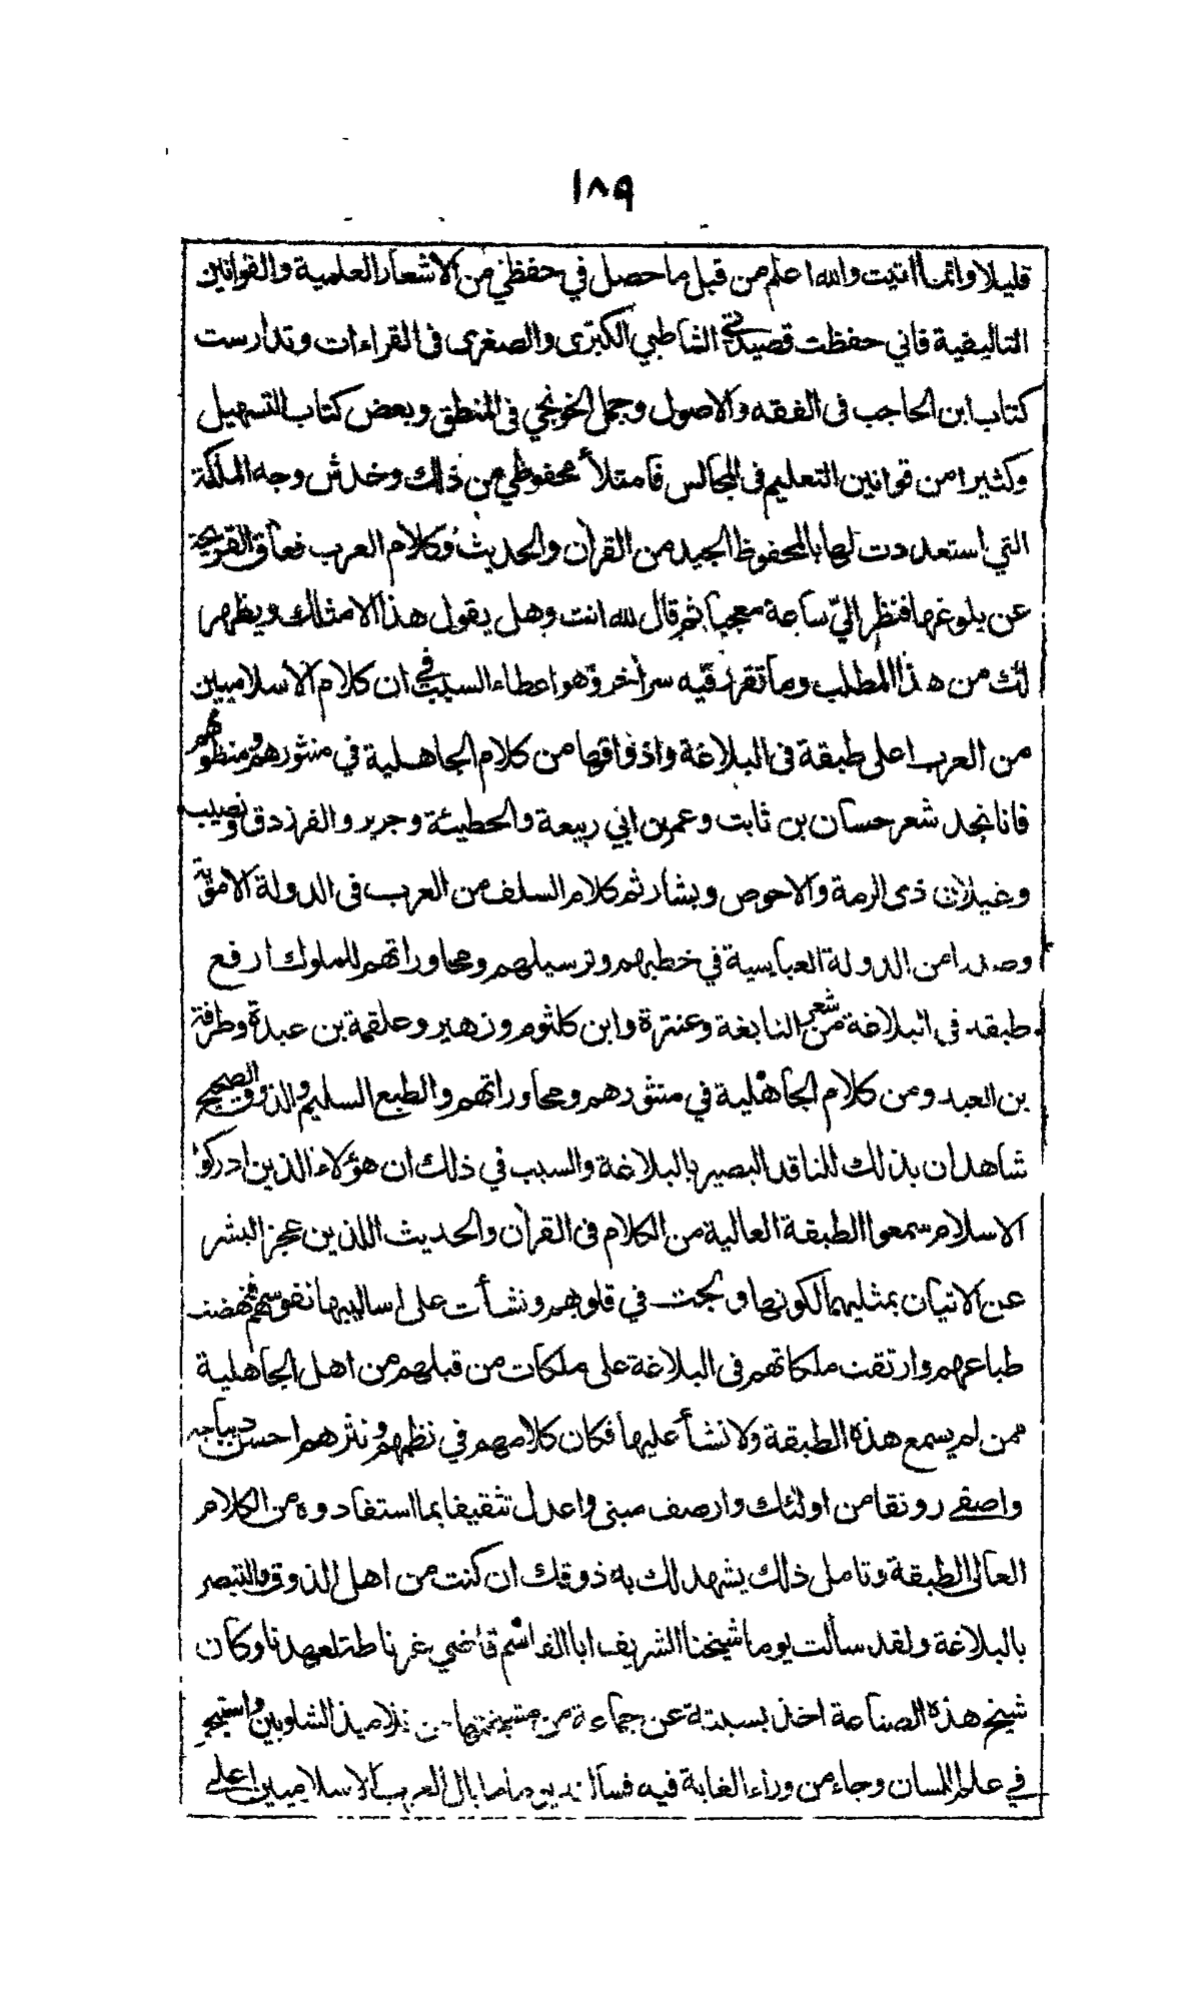 ١٨٩
قليلا وانما اتيت والله اعلم من قبل ما حصل في حفظي من الاشعار العلمية والقوانين
التاليفية فاني حفظت قصيدتي الشاطبي الكبرى والصغرى في القراءات وتدارست
كتاب ابن الحاجب في الفقه والاصول وجمل الخونجي في المنطق وبعض كتاب التسهيل
وكثيرا من قوانين التعليم في المجالس فامتلأ محفوظي من ذلك وخدش وجه الملكة
التي استعددت لها بالمحفوظ الجيد من القران والحديث وكلام العرب فعاق القريحة
عن بلوغها فنظر اليّ ساعة معجبا ثم قال لله انت وهل يقول هذا الا مثلك ويظهر
لك من هذا المطلب وما تقرر فيه سر اخر وهو اعطاء السبب في ان كلام الاسلاميين
من العرب اعلى طبقة في البلاغة واذواقها من كلام الجاهلية في منثورهم ومنظومهم
فانا نجد شعر حسان بن ثابت وعمر بن ابي ربيعة والحطيئة وجرير والفرزدق ونصيب
وغيلان ذى الرمة والاحوص وبشار ثم كلام السلف من العرب في الدولة الاموية
وصدرا من الدولة العباسية في خطبهم وترسيلهم ومحاوراتهم للملوك ارفع
طبقه في البلاغة من شعر النابغة وعنترة وابن كلثوم وزهير وعلقمة بن عبدة وطرفة
بن العبد ومن كلام الجاهلية في منثورهم ومحاوراتهم والطبع السليم والذوق الصحيح
شاهدان بذلك للناقد البصير بالبلاغة والسبب في ذلك ان هؤلاء الذين ادركوا
الاسلام سمعوا الطبقة العالية من الكلام في القران والحديث اللذين عجز البشر
عن الاتيان بمثليهما لكونها ولجت في قلوبهم ونشأت على اساليبها نفوسهم فنهضت
طباعهم وارتقت ملكاتهم في البلاغة على ملكات من قبلهم من اهل الجاهلية
ممن لم يسمع هذه الطبقة ولا نشأ عليها فكان كلامهم في نظمهم ونثرهم احسن ديباجه
واصفى رونقا من اولئك وارصف مبنى واعدل تثقيفا بما استفادوه من الكلام
العالى الطبقة وتامل ذلك يشهد لك به ذوقك ان كنت من اهل الذوق والتبصر
بالبلاغة ولقد سألت يوما شيخنا الشريف ابا القاسم قاضي غرناطة لعهدنا وكان
شيخ هذه الصناعة اخذ بسبتة عن جماعة من مشيختها من تلاميذ الشلوبين واستبحر
في علم اللسان وجاء من وراء الغاية فيه فسألته يوما ما بال العرب الاسلاميين اعلى